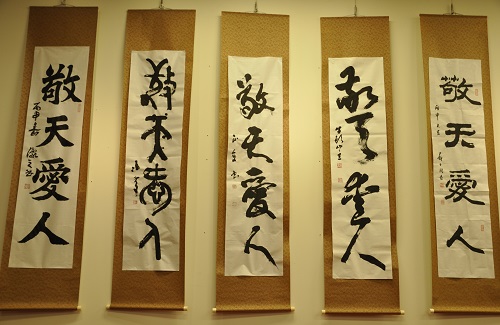 敬天愛人
丙申春
敬天愛人
敬天愛人
敬天愛人
敬天愛人